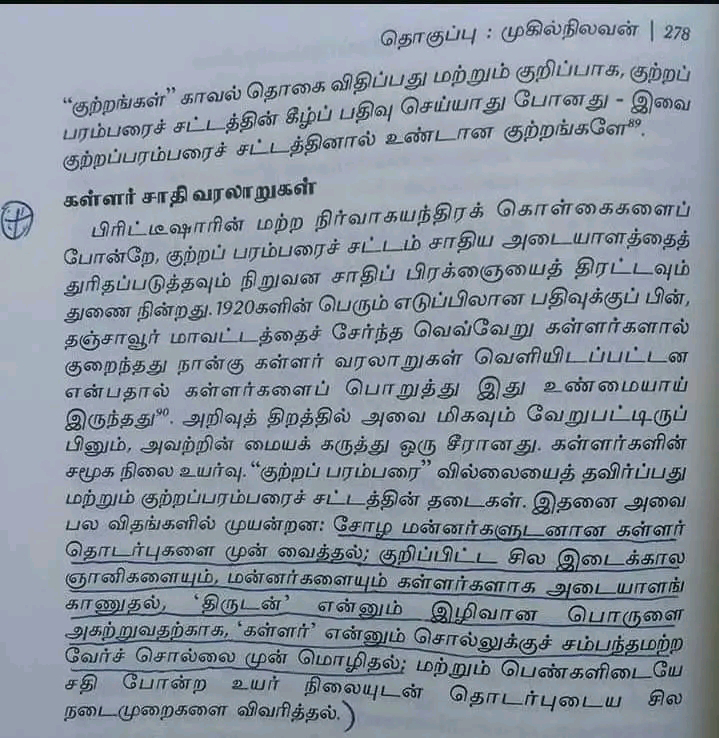 தொகுப்பு : முகில்நிலவன் | 278
“குற்றங்கள்” காவல் தொகை விதிப்பது மற்றும் குறிப்பாக, குற்றப்
பரம்பரைச் சட்டத்தின் கீழ்ப் பதிவு செய்யாது போனது – இவை
குற்றப்பரம்பரைச் சட்டத்தினால் உண்டான குற்றங்களே⁸⁹.
கள்ளர் சாதி வரலாறுகள்
பிரிட்டீஷாரின் மற்ற நிர்வாகயந்திரக் கொள்கைகளைப்
போன்றே, குற்றப் பரம்பரைச் சட்டம் சாதிய அடையாளத்தைத்
துரிதப்படுத்தவும் நிறுவன சாதிப் பிரக்ஞையைத் திரட்டவும்
துணை நின்றது. 1920களின் பெரும் எடுப்பிலான பதிவுக்குப் பின்,
தஞ்சாவூர் மாவட்டத்தைச் சேர்ந்த வெவ்வேறு கள்ளர்களால்
குறைந்தது நான்கு கள்ளர் வரலாறுகள் வெளியிடப்பட்டன
என்பதால் கள்ளர்களைப் பொறுத்து இது உண்மையாய்
இருந்தது⁹⁰. அறிவுத் திறத்தில் அவை மிகவும் வேறுபட்டிருப்
பினும், அவற்றின் மையக் கருத்து ஒரு சீரானது. கள்ளர்களின்
சமூக நிலை உயர்வு. “குற்றப் பரம்பரை” வில்லையைத் தவிர்ப்பது
மற்றும் குற்றப்பரம்பரைச் சட்டத்தின் தடைகள். இதனை அவை
பல விதங்களில் முயன்றன: சோழ மன்னர்களுடனான கள்ளர்
தொடர்புகளை முன் வைத்தல்; குறிப்பிட்ட சில இடைக்கால
ஞானிகளையும், மன்னர்களையும் கள்ளர்களாக அடையாளங்
காணுதல், ‘திருடன்’ என்னும் இழிவான பொருளை
அகற்றுவதற்காக, ‘கள்ளர்’ என்னும் சொல்லுக்குச் சம்பந்தமற்ற
வேர்ச் சொல்லை முன் மொழிதல்; மற்றும் பெண்களிடையே
சதி போன்ற உயர் நிலையுடன் தொடர்புடைய சில
நடைமுறைகளை விவரித்தல்.)